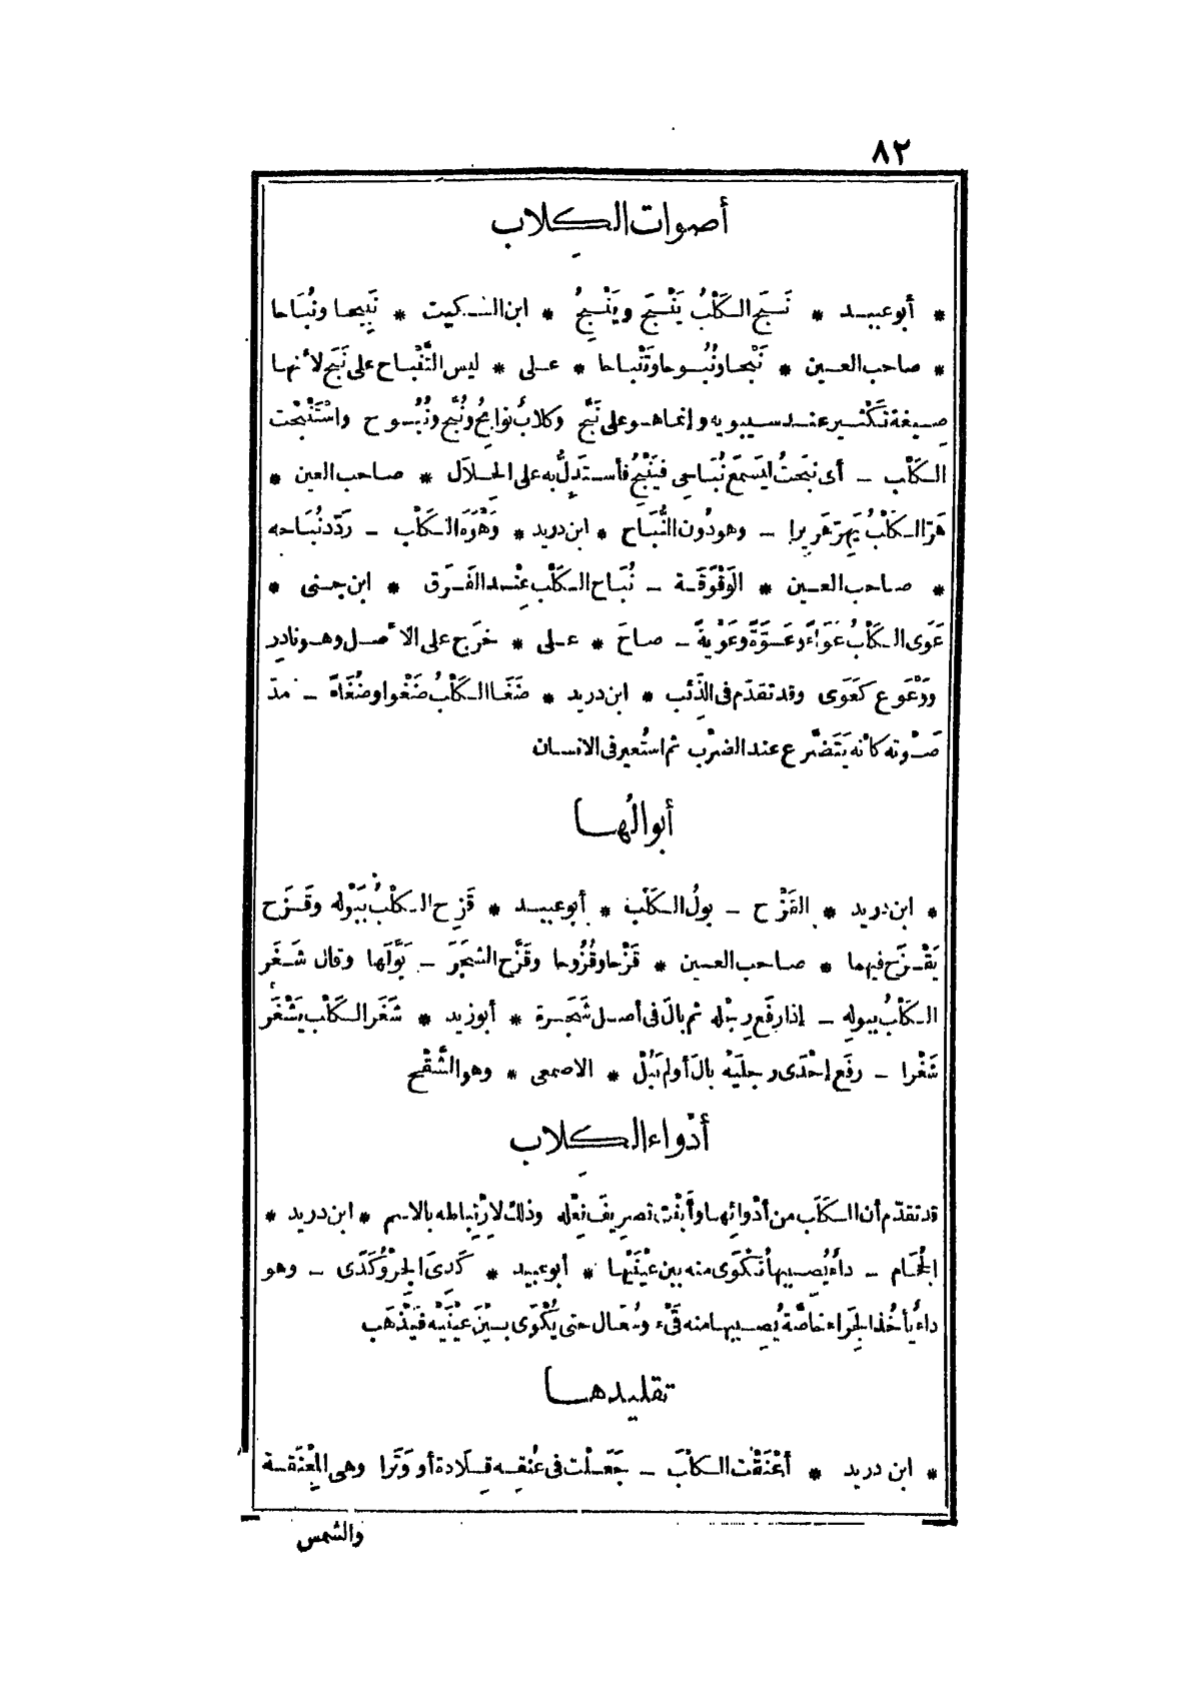 ٨٢
أصوات الكِلاب
* أبو عبيد * نَبَح الكَلْبُ يَنْبَح ويَنْبِحُ * ابن السكيت * نَبِيحا ونُبَاحا
* صاحب العين * نَبْحا ونُبُوحا وتَنْباحا * على * ليس التَّنْباح على نَبَح لأنها
صيغة تكْثير عند سيبويه وانما هو على نَبَّح وكلابٌ نوابِحُ ونُبَّح ونُبُوح واسْتَنْبَحْت
الكَلْب ـ أى نبَحتُ ليَسمَع نُبَاحِى فيَنْبِحُ فأستَدِلُّ به على الحِلال * صاحب العين *
هَرّ الكَلْبُ يَهِرّ هَرِيرا ـ وهو دُون النُّبَاح * ابن دريد * وَهْوَه الكَلْب ـ ردّد نُبَاحه
* صاحب العين * الوَقْوَقَة ـ نُبَاح الكَلْب عِنْد الفَرَق * ابن جنى *
عَوَى الكَلْبُ عُوَاءً وعَوَّةً وعَوْيةً ـ صاحَ * على * خَرَج على الأصل وهو نادِر
ووَعْوَع كعَوَى وقد تقدّم فى الذِّئب * ابن دريد * ضَغَا الكَلْبُ ضَغْوا وضُغَاءً ـ مدّ
صَوْته كأنه يَتَضَرَّع عند الضرْب ثم استُعير فى الانسان
أبوالُها
* ابن دريد * القَزْح ـ بولُ الكَلْب * أبو عبيد * قَزِح الكلْبُ ببَوْله وقَزَح
يَقْزَح فيهما * صاحب العين * قَزْحا وقُزُوحا وقَزَّح الشجَرَ ـ بَوَّلَها وقال شَغَر
الكَلْبُ ببوله ـ إذا رفَع رِجْله ثم بالَ فى أصل شَجَرة * أبو زيد * شَغَر الكَلْب يَشْغَر
شَغْرا ـ رفَع إحْدَى رجليْه بالَ أو لم يَبُلْ * الاصمعى * وهو الشَّقْح
أدْواء الكِلاب
قد تقدّم أن الكَلَب من أدْوائِها وأَبَنْت تصريفَ فِعْله وذلك لارْتِباطه بالاسم * ابن دريد *
الجُحَام ـ داءٌ يُصِيبها تُكْوَى منه بين عيْنَيْها * أبو عبيد * كَدِىَ الجِرْوُ كَدًى ـ وهو
داءٌ يأخُذ الجِرَاء خاصَّة يُصِيبها منه قَىْء وسُعَال حتى يُكْوَى بيْن عيْنَيْه فيَذْهَب
تقليدها
* ابن دريد * أعْنَقْت الكلْبَ ـ جَعَلْت فى عُنقِه قِلَادة أو وَتَرا وهى المِعْنَقة
والشمس